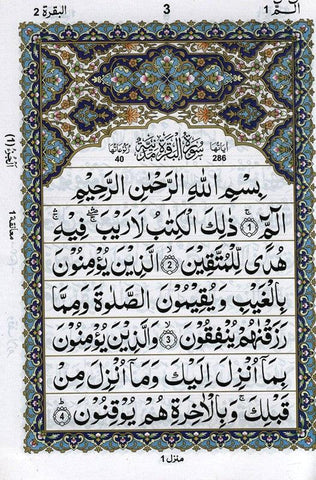 البقرة 2
3
الٓمّٓ 1
سُوْرَةُ الْبَقَرَةِ مَدَنِيَّةٌ
اٰيَاتُهَا 286
رُكُوْعَاتُهَا 40
بِسْمِ اللّٰهِ الرَّحْمٰنِ الرَّحِيْمِ
الٓمّٓ ۚ﴿1﴾ ذٰلِكَ الْكِتٰبُ لَا رَيْبَ ۛ ۚ فِيْهِ ۛ ۚ
هُدًى لِّلْمُتَّقِيْنَ ۙ﴿2﴾ الَّذِيْنَ يُؤْمِنُوْنَ
بِالْغَيْبِ وَيُقِيْمُوْنَ الصَّلٰوةَ وَمِمَّا
رَزَقْنٰهُمْ يُنْفِقُوْنَ ۙ﴿3﴾ وَالَّذِيْنَ يُؤْمِنُوْنَ
بِمَآ اُنْزِلَ اِلَيْكَ وَمَآ اُنْزِلَ مِنْ
قَبْلِكَ ۚ وَبِالْاٰخِرَةِ هُمْ يُوْقِنُوْنَ ؕ﴿4﴾
معانقة 1
منزل 1